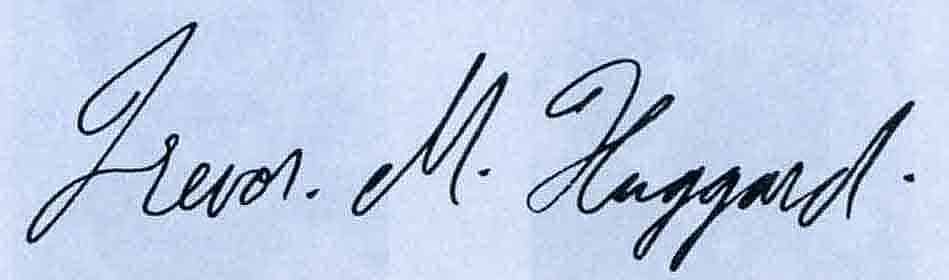 Trevor. M. Huggard.